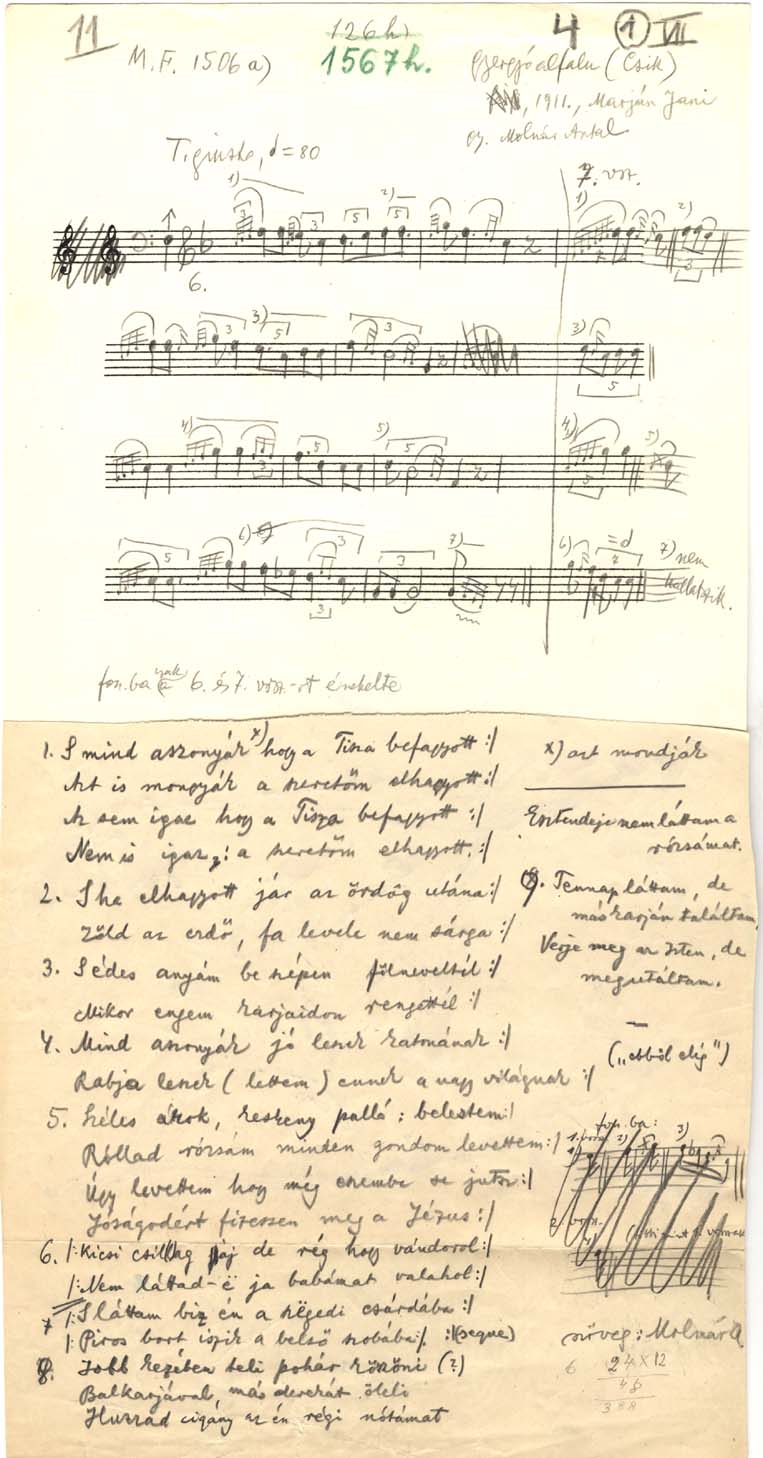 11
126 h.
4 1 VII
M.F. 1506 a)
1567 h.
Gyergyóalfalu (Csík)
, 1911., Marján Jani
gy. Molnár Antal
Tempo giusto, = 80
7. vsz.
1)
2)
1)
2)
3
3
5
5
3
6.
3)
3)
3
5
3
5
4)
5)
4)
5)
3
5
5
3
6)
7)
6)
= d
7) nem
hallatszik.
5
3
3
3
4
fon.ba csak a 6. és 7. vsz.-ot énekelte
1. S mind aszonyák x) hogy a Tisza befagyott :/
x) azt mondják
Azt is mongyák a szeretőm elhagyott :/
Az sem igaz hogy a Tisza befagyott :/
Nem is igaz, a szeretőm elhagyott. :/
Esztendeje nem láttam a
rózsámat.
2. S ha elhagyott jár az ördög utána :/
Zöld az erdő, fa levele nem sárga :/
9. Tennap láttam, de
más karján találtam,
Verje meg az Isten, de
megutáltam.
3. S édes anyám be szépen fölneveltél :/
Mikor engem karjaidon rengettél :/
4. Mind aszonyák jó leszek katonának :/
Rabja leszek (lettem) ennek a nagy világnak :/
("ebből elég")
5. Széles árok, keskeny palló, belestem :/
Róllad rózsám minden gondom levettem :/
Úgy levettem hogy még eszembe se jutsz :/
Jóságodért fizessen meg a Jézus :/
fon.ba:
1. vsz.
2)
3)
6. /: Kicsi csillag jáj de rég hogy vándorol :/
/: Nem láttad-ë ja babámat valahol :/
7 /: S láttam biz én a szëgedi csárdába :/
/: Piros bort iszik a belső szobába/. :/ (seque)
szöveg: Molnár A
8. Jobb kezében teli pohár kököni (?)
Balkarjával, más derekát öleli
Huzzad cigány az én régi nótámat
6 24 x 12
48
388